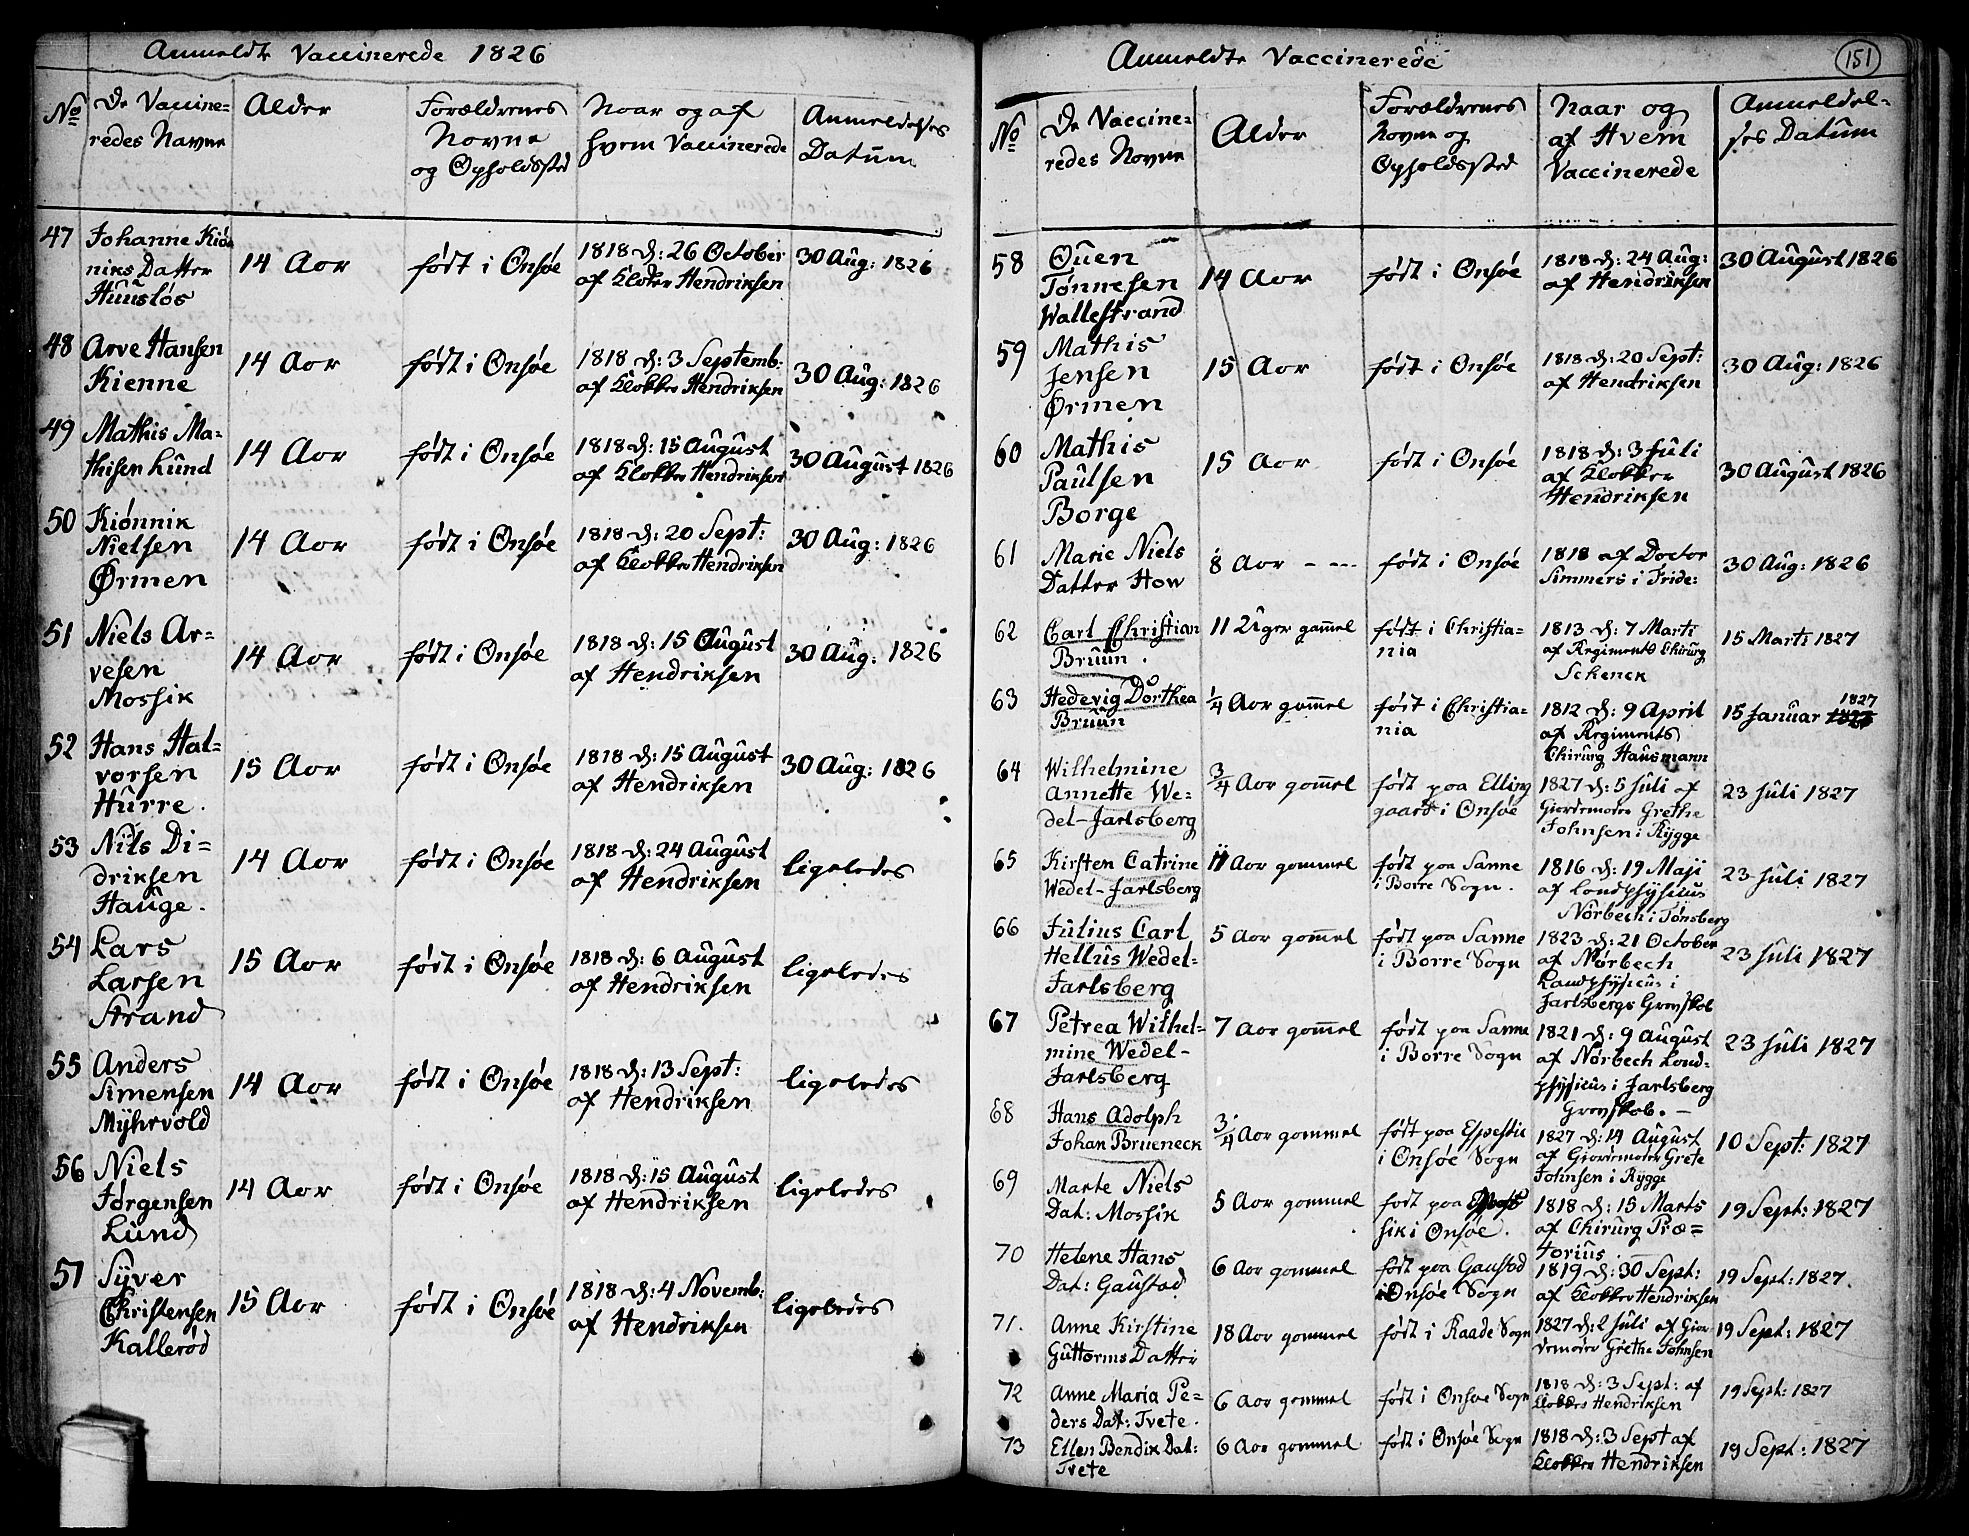 Anmeldte Vaccinerede 1826
No
De Vaccine=
redes Navne
Alder
Forældrenes
Navne
og Opholdssted
Naar og af
hvem Vaccinerede
Anmeldelses
Datum
47 Johanne Kiøn
niks Datter
Huusløs
14 Aar
født i Onsøe
1818 d: 26 October
af Klokker Hendriksen
30 Aug: 1826
48 Arve Hansen
Kienne
14 Aar
født i Onsøe
1818 d: 3 Septemb:
af Klokker Hendriksen
30 Aug: 1826
49 Mathis Ma=
thisen Lund
14 Aar
født i Onsøe
1818 d: 15 August
af Klokker Hendriksen
30 August 1826
50 Kiønnik
Nielsen
Ørmen
14 Aar
født i Onsøe
1818 d: 20 Sept:
af Klokker Hendriksen
30 Aug: 1826
51 Niels Ar=
vesen
Mossik
14 Aar
født i Onsøe
1818 d: 15 August
af Hendriksen
30 Aug: 1826
52 Hans Hal=
vorsen
Hurre.
15 Aar
født i Onsøe
1818 d: 15 August
af Hendriksen
30 Aug: 1826
53 Nils Di=
driksen
Hauge.
14 Aar
født i Onsøe
1818 d: 24 August
af Hendriksen
ligeledes
54 Lars
Larsen
Strand
15 Aar
født i Onsøe
1818 d: 6 August
af Hendriksen
ligeledes
55 Anders
Simensen
Myhrvold
14 Aar
født i Onsøe
1818 d: 13 Sept:
af Hendriksen
ligeledes
56 Niels
Jørgensen
Lund
14 Aar
født i Onsøe
1818 d: 15 August
af Hendriksen
ligeledes
57 Syver
Christensen
Kallerød
15 Aar
født i Onsøe
1818 d: 4 Novemb:
af Hendriksen
ligeledes
Anmeldte Vaccinerede
151
No
De Vaccine=
redes Navne
Alder
Forældrenes
Navne og
Opholdssted
Naar og
af Hvem
Vaccinerede
Anmeldel=
ses Datum
58 Ouen
Tønnesen
Wallestrand
14 Aar
født i Onsøe
1818 d: 24 Aug:
af Hendriksen
30 August 1826
59 Mathis
Jensen
Ørmen
15 Aar
født i Onsøe
1818 d: 20 Sept:
af Hendriksen
30 Aug: 1826
60 Mathis
Paulsen
Borge
15 Aar
født i Onsøe
1818 d: 3 Juli
af Klokker
Hendriksen
30 August 1826
61 Marie Niels
Datter How
8 Aar
født i Onsøe
1818 af Doctor
Simmers i Fride:
30 Aug: 1826
62 Carl Christian
Bruun.
11 Uger gam̅el
født i Christia=
nia
1813 d: 7 Marts
af Regiments Chirurg
Schenck
15 Marts 1827
63 Hedevig Dorthea
Bruun
1/4 Aar gam̅el
født i Christia=
nia
1812 d: 9 April
af Regiments
Chirurg Hausmann
15 Januar 1827
64 Wilhelmine
Annette We=
del-Jarlsberg
3/4 Aar gam̅el
født paa Elling
gaard i Onsøe
1827 d: 5 Juli af
Giordemoder Grethe
Johnsen i Rygge
23 Juli 1827
65 Kirsten Catrine
Wedel-Jarlsberg
11 Aar gammel
født paa Sanne
i Borre Sogn.
1816 d: 19 Maji
af Landphysicus
Nørbech i Tønsberg
23 Juli 1827
66 Julius Carl
Hellius Wedel-
Jarlsberg
5 Aar gam̅el
født paa Sanne
i Borre Sogn
1823 d: 21 October
af Nørbech
Landphysicus i
Jarlsbergs Grevskab
23 Juli 1827
67 Petrea Wilhel=
mine Wedel-
Jarlsberg
7 Aar gam̅el
født paa Sanne
i Borre Sogn
1821 d: 9 August
af Nørbech Land=
physicus i Jarlsberg
Grevskab. -
23 Juli 1827
68 Hans Adolph
Johan Brueneck
3/4 Aar gammel
født paa Espestic
i Onsøe Sogn
1827 d: 14 August
af Giordemoder Grete
Johnsen i Rygge
10 Sept: 1827
69 Marte Niels
Dat: Mossik
5 Aar gammel
født paa
sik i Onsøe.
1818 d: 15 Marts
af Chirurg Præ=
torius
19 Sept: 1827
70 Helene Hans
Dat: Gaustad
6 Aar gammel
født paa Gaustad
i Onsøe Sogn
1819 d: 30 Sept:
af Klokker Hendriksen
19 Sept: 1827.
71. Anne Kirstine
Guttorms Datter
18 Aar gammel
født i Raade Sogn
1827 d: 2 Juli af Gior=
demoder Grethe Johnsen
19 Sept: 1827
72 Anne Maria Pe=
ders Dat: Tvete.
6 Aar gammel
født i Onsøe Sogn
1818 d: 3 Sept: af
Klokker Hendriksen
19 Sept: 1827
73 Ellen Bendik Dat:
Tvete
6 Aar gammel
født i Onsøe Sogn
1818 d: 3 Sept af
Klokker Hendriksen
19 Sept: 1827